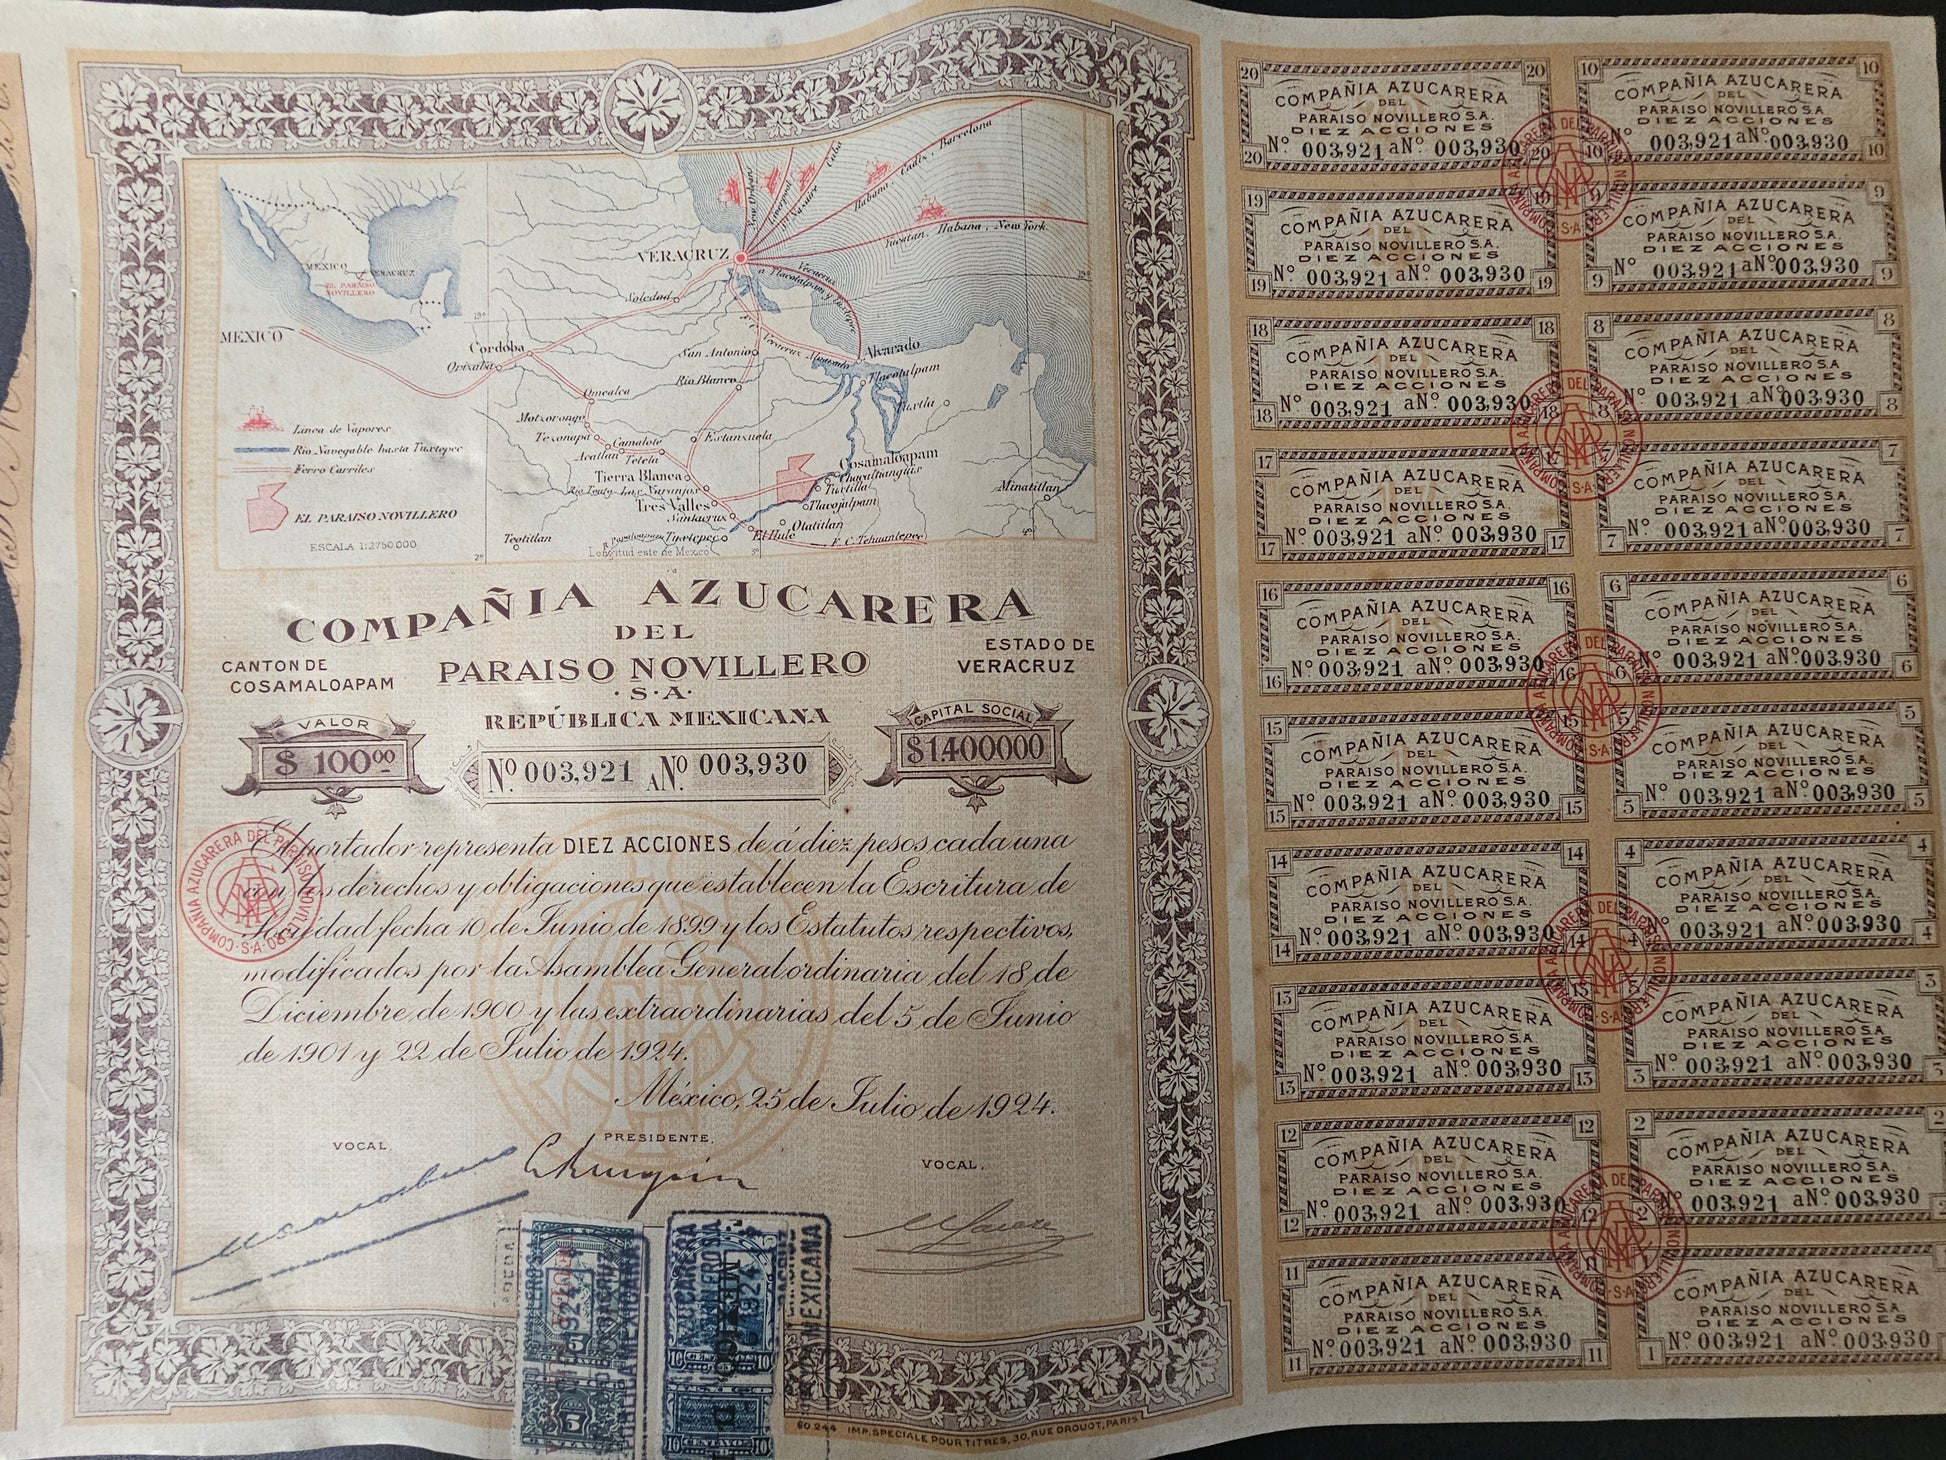 New Orleans
Liverpool
St. Nazaire
Cuba
Habana, Cadiz, Barcelona
Yucatan, Habana, New York
VERACRUZ
a Tlacotalpam y Tuxtepec
Veracruz
MEXICO
VERACRUZ
EL PARAISO
NOVILLERO
Soledad
19º
19º
MEXICO
Cordoba
Orixaba
San Antonio
F. C. Veracruz Alvarado
Alvarado
Tlacotalpam
Rio Blanco
Omealca
Tuxtla
Motzorongo
Tezonapa
Camalote
Estanzuela
Acatlan
Tetela
Cosamaloapam
Chacaltianguis
Tierra Blanca
Tuxtilla
Las Naranjos
Minatitlan
Tres Valles
Tlacojalpam
Santacrux
Otatitlan
El Hule
Teotitlan
Tuxtepec
F. C. Tehuantepec
Linea de Vapores
Rio Navegable hasta Tuxtepec
Ferro Carriles
EL PARAISO NOVILLERO
ESCALA 1:2750000
2º
Longitud este de Mexico
3º
4º
COMPAÑIA AZUCARERA
DEL
CANTON DE
COSAMALOAPAM
PARAISO NOVILLERO
ESTADO DE
VERACRUZ
·S·A·
REPÚBLICA MEXICANA
VALOR
$ 100.00
Nº 003,921 A Nº 003,930
CAPITAL SOCIAL
$1.400000
El portador representa DIEZ ACCIONES de á diez pesos cada una
con los derechos y obligaciones que establecen la Escritura de
Sociedad fecha 10 de Junio de 1899 y los Estatutos respectivos,
modificados por la Asamblea General ordinaria del 18 de
Diciembre de 1900 y las extraordinarias del 5 de Junio
de 1901 y 22 de Julio de 1924.
México, 25 de Julio de 1924.
COMPAÑIA AZUCARERA DEL PARAISO NOVILLERO·S·A·
VOCAL,
PRESIDENTE,
VOCAL,
5
5
10 CENTAVOS 10
10 CENTAVOS 10
AZUCARERA
MEXICO
1924
REPUBLICA MEXICANA
60.244 IMP. SPECIALE POUR TITRES, 30, RUE DROUOT, PARIS
20 20
COMPAÑIA AZUCARERA
DEL
PARAISO NOVILLERO S.A.
DIEZ ACCIONES
20 Nº 003,921 a Nº 003,930 20
10 10
COMPAÑIA AZUCARERA
DEL
PARAISO NOVILLERO S.A.
DIEZ ACCIONES
10 Nº 003,921 a Nº 003,930 10
COMPAÑIA AZUCARERA DEL PARAISO NOVILLERO·S·A·
19 19
COMPAÑIA AZUCARERA
DEL
PARAISO NOVILLERO S.A.
DIEZ ACCIONES
19 Nº 003,921 a Nº 003,930 19
9 9
COMPAÑIA AZUCARERA
DEL
PARAISO NOVILLERO S.A.
DIEZ ACCIONES
9 Nº 003,921 a Nº 003,930 9
18 18
COMPAÑIA AZUCARERA
DEL
PARAISO NOVILLERO S.A.
DIEZ ACCIONES
18 Nº 003,921 a Nº 003,930 18
8 8
COMPAÑIA AZUCARERA
DEL
PARAISO NOVILLERO S.A.
DIEZ ACCIONES
8 Nº 003,921 a Nº 003,930 8
COMPAÑIA AZUCARERA DEL PARAISO NOVILLERO·S·A·
17 17
COMPAÑIA AZUCARERA
DEL
PARAISO NOVILLERO S.A.
DIEZ ACCIONES
17 Nº 003,921 a Nº 003,930 17
7 7
COMPAÑIA AZUCARERA
DEL
PARAISO NOVILLERO S.A.
DIEZ ACCIONES
7 Nº 003,921 a Nº 003,930 7
16 16
COMPAÑIA AZUCARERA
DEL
PARAISO NOVILLERO S.A.
DIEZ ACCIONES
16 Nº 003,921 a Nº 003,930 16
6 6
COMPAÑIA AZUCARERA
DEL
PARAISO NOVILLERO S.A.
DIEZ ACCIONES
6 Nº 003,921 a Nº 003,930 6
COMPAÑIA AZUCARERA DEL PARAISO NOVILLERO·S·A·
15 15
COMPAÑIA AZUCARERA
DEL
PARAISO NOVILLERO S.A.
DIEZ ACCIONES
15 Nº 003,921 a Nº 003,930 15
5 5
COMPAÑIA AZUCARERA
DEL
PARAISO NOVILLERO S.A.
DIEZ ACCIONES
5 Nº 003,921 a Nº 003,930 5
14 14
COMPAÑIA AZUCARERA
DEL
PARAISO NOVILLERO S.A.
DIEZ ACCIONES
14 Nº 003,921 a Nº 003,930 14
4 4
COMPAÑIA AZUCARERA
DEL
PARAISO NOVILLERO S.A.
DIEZ ACCIONES
4 Nº 003,921 a Nº 003,930 4
COMPAÑIA AZUCARERA DEL PARAISO NOVILLERO·S·A·
13 13
COMPAÑIA AZUCARERA
DEL
PARAISO NOVILLERO S.A.
DIEZ ACCIONES
13 Nº 003,921 a Nº 003,930 13
3 3
COMPAÑIA AZUCARERA
DEL
PARAISO NOVILLERO S.A.
DIEZ ACCIONES
3 Nº 003,921 a Nº 003,930 3
12 12
COMPAÑIA AZUCARERA
DEL
PARAISO NOVILLERO S.A.
DIEZ ACCIONES
12 Nº 003,921 a Nº 003,930 12
2 2
COMPAÑIA AZUCARERA
DEL
PARAISO NOVILLERO S.A.
DIEZ ACCIONES
2 Nº 003,921 a Nº 003,930 2
COMPAÑIA AZUCARERA DEL PARAISO NOVILLERO·S·A·
11 11
COMPAÑIA AZUCARERA
DEL
PARAISO NOVILLERO S.A.
DIEZ ACCIONES
11 Nº 003,921 a Nº 003,930 11
1
COMPAÑIA AZUCARERA
DEL
PARAISO NOVILLERO S.A.
DIEZ ACCIONES
1 Nº 003,921 a Nº 003,930